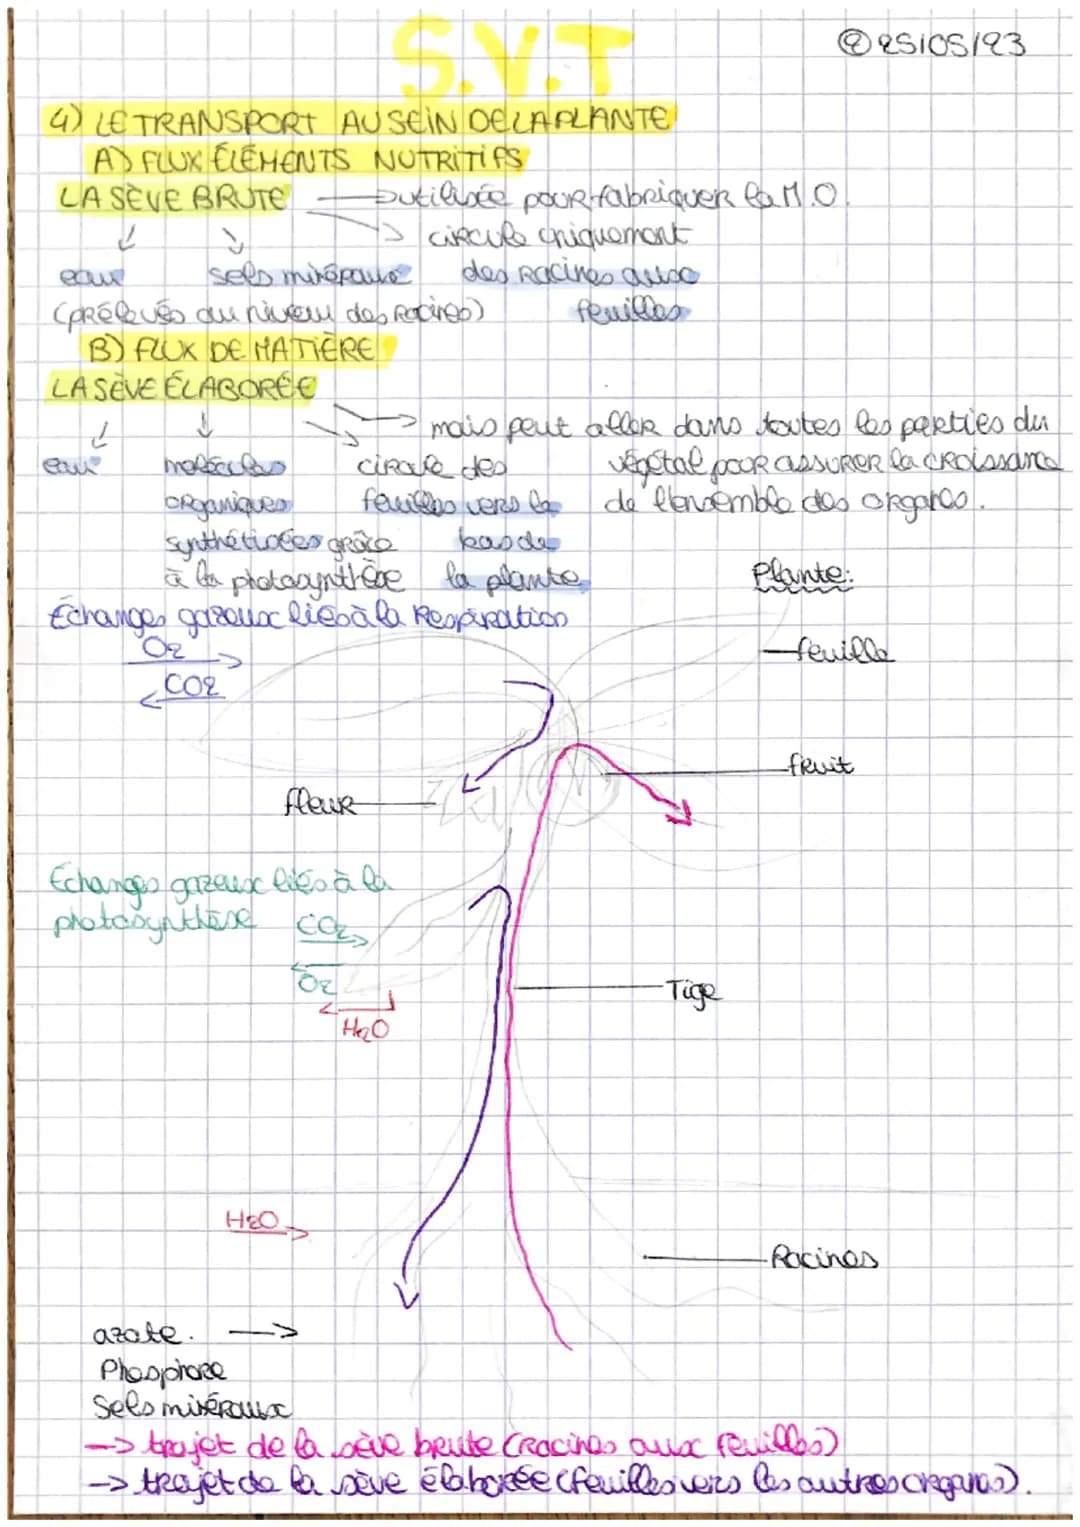 S.V.T
② 25/05/23
4) LE TRANSPORT AU SEIN DE LA PLANTE
A) FLUX ÉLÉMENTS NUTRITIFS
LA SÈVE BRUTE → utilisée pour fabriquer la M.O.
↓ ↓ → circule uniquement
eau sels minéraux des racines aux
(prélevés au niveau des racines) feuilles
B) FLUX DE MATIÈRE
LA SÈVE ÉLABORÉE
→ mais peut aller dans toutes les parties du
eau molécules circule des végétal pour assurer la croissance
organiques feuilles vers le de l'ensemble des organes.
synthétisées grâce bas de
à la photosynthèse la plante
Plante:
Échanges gazeux liés à la Respiration
O2 →
← CO2
feuille
fruit
fleur
Échanges gazeux liés à la
photosynthèse CO2 →
← O2
← H2O
Tige
H2O →
Racines
azote. →
Phosphore
Sels minéraux
→ trajet de la sève brute (racines aux feuilles)
→ trajet de la sève élaborée (feuilles vers les autres organes).